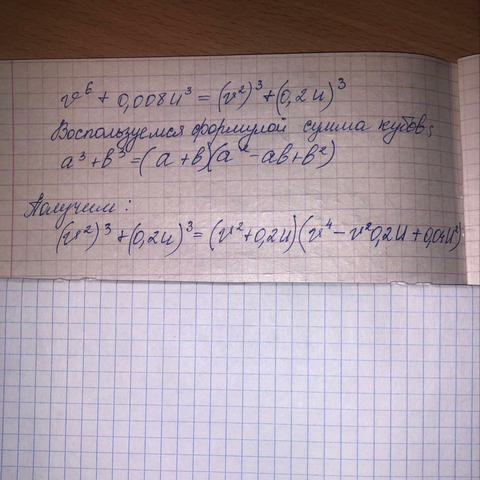 v⁶ + 0,008u³ = (v²)³ + (0,2u)³
Воспользуемся формулой сумма кубов;
a³ + b³ = (a + b)(a² - ab + b²)
Получим:
(v²)³ + (0,2u)³ = (v² + 0,2u)(v⁴ - v²0,2u + 0,04u²)